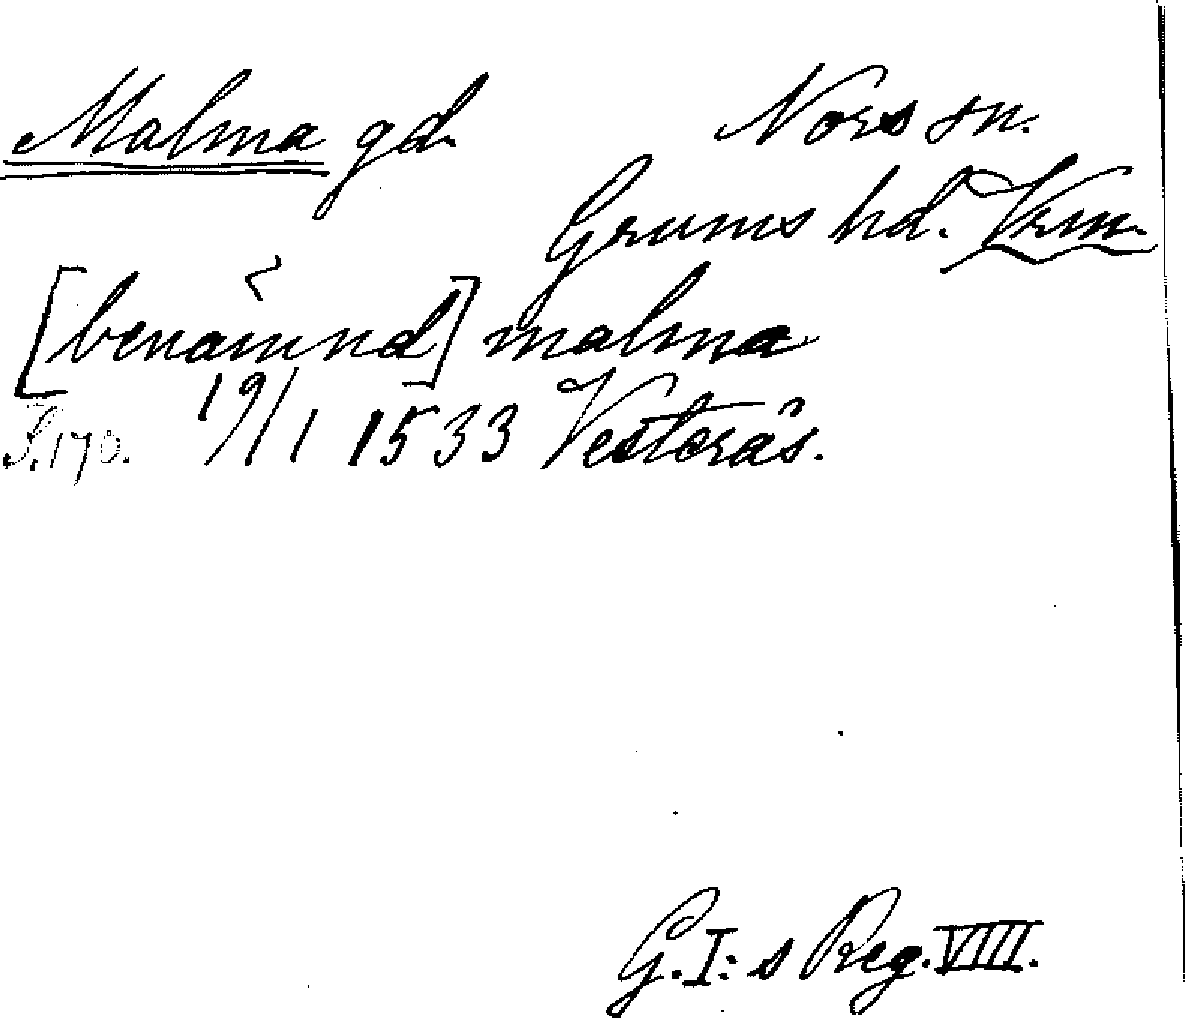 Malma gd. Nors sn.
Grums hd. Vrm.
[benämnd] malma
S.170. 19/1 1533 Vesterås.
G.I:s Reg. VIII.